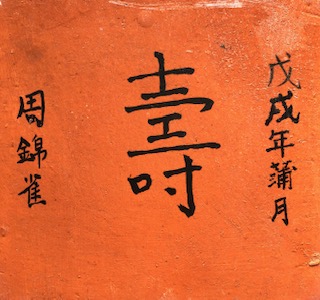 戊戌年蒲月
壽
周錦雀